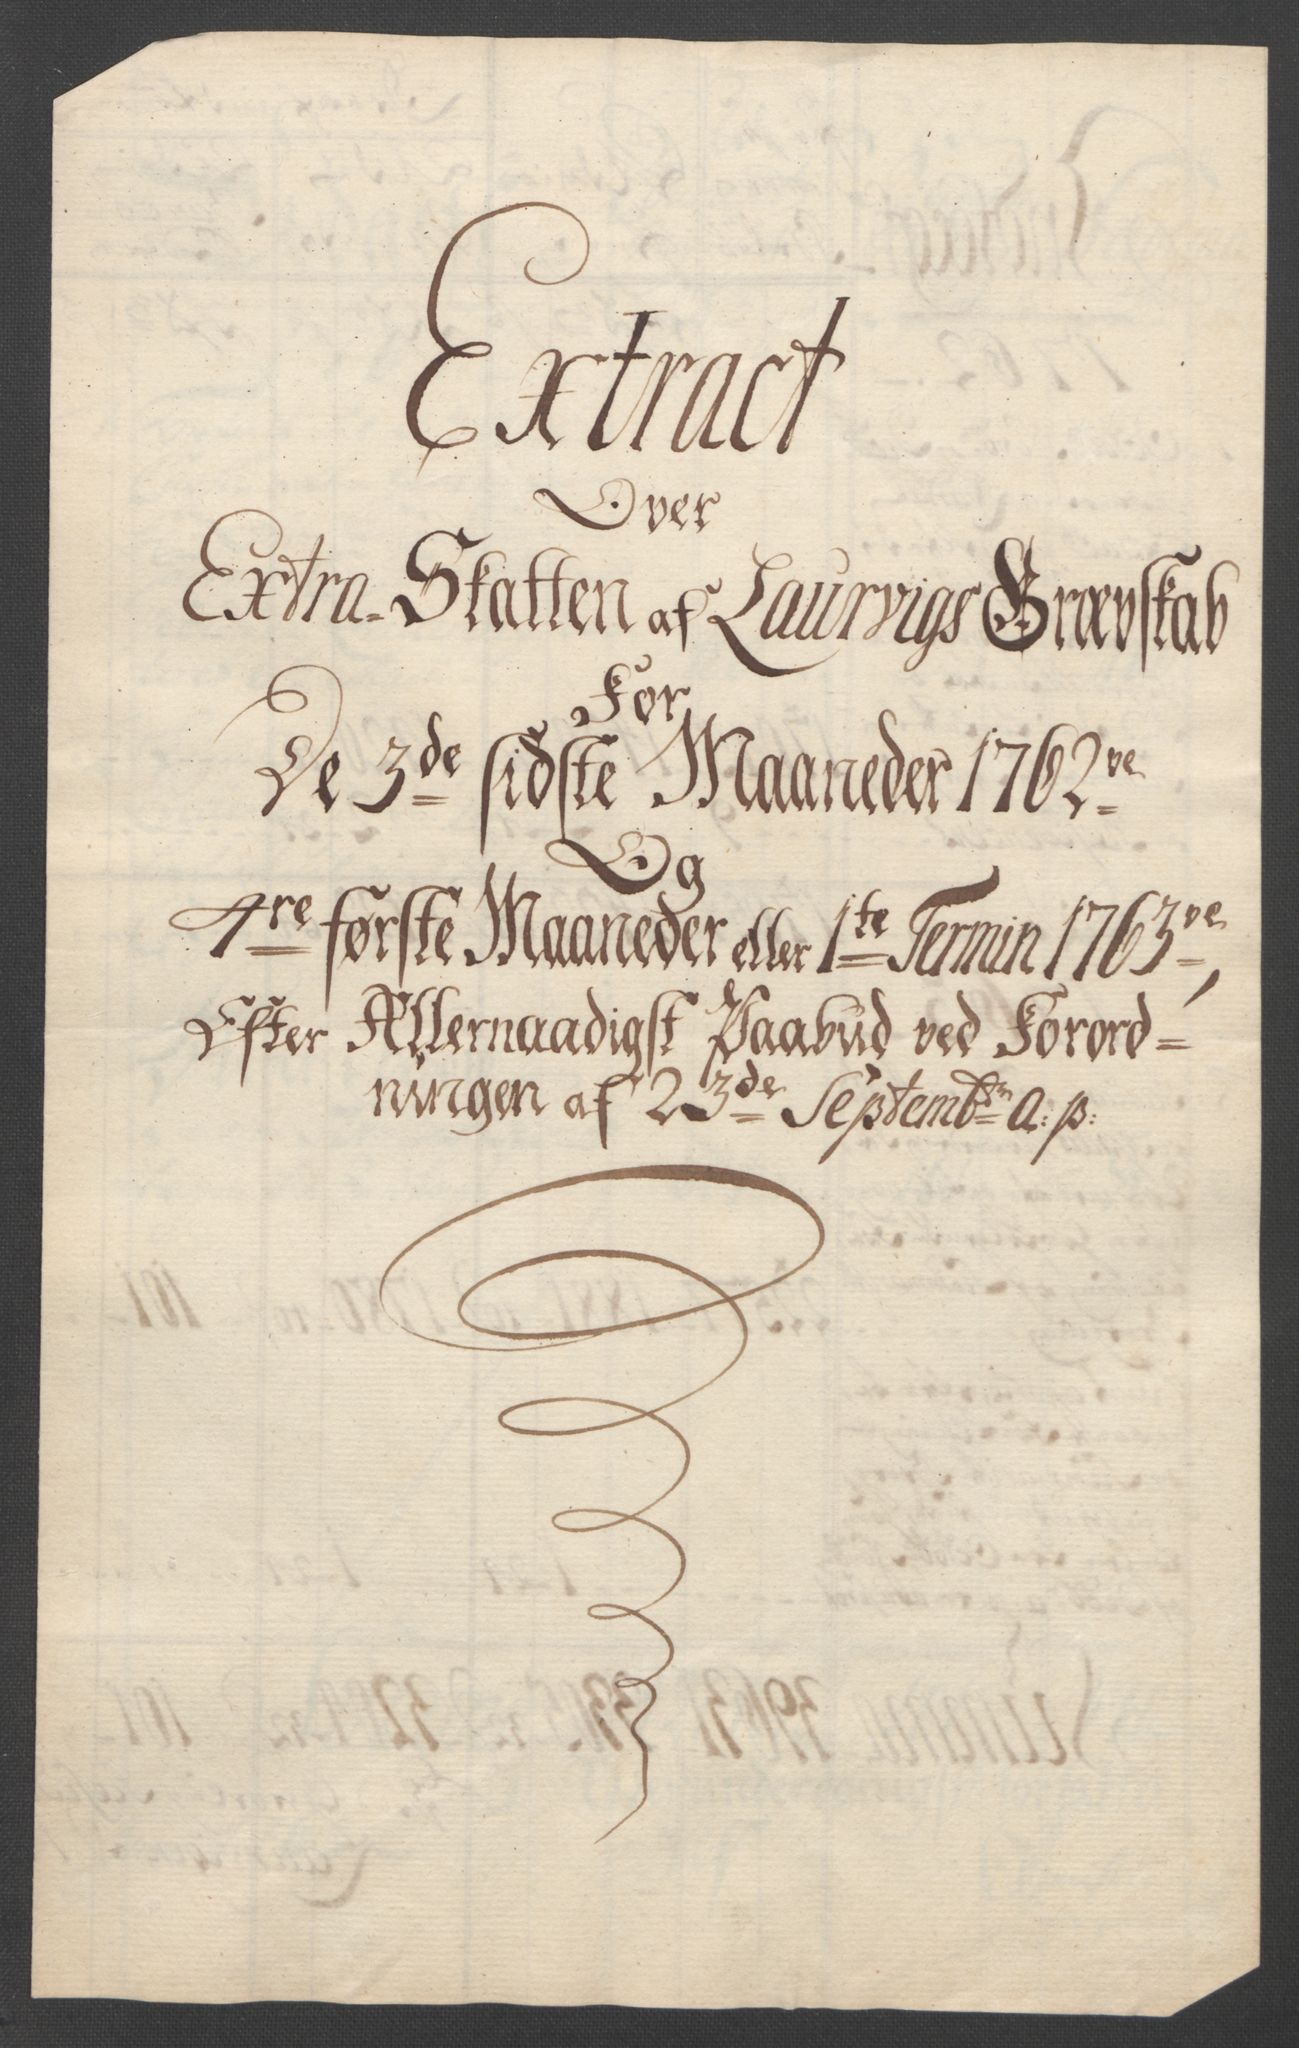 Extract
Over
Extra-Skatten af Laurvigs Grævskab
For
De 3de sidste Maaneder 1762ve
Og
4re første Maaneder eller 1te Termin 1763ve,
Efter Allernaadigst Paabud ved Forord=
ningen af 23de Septembr a: p: